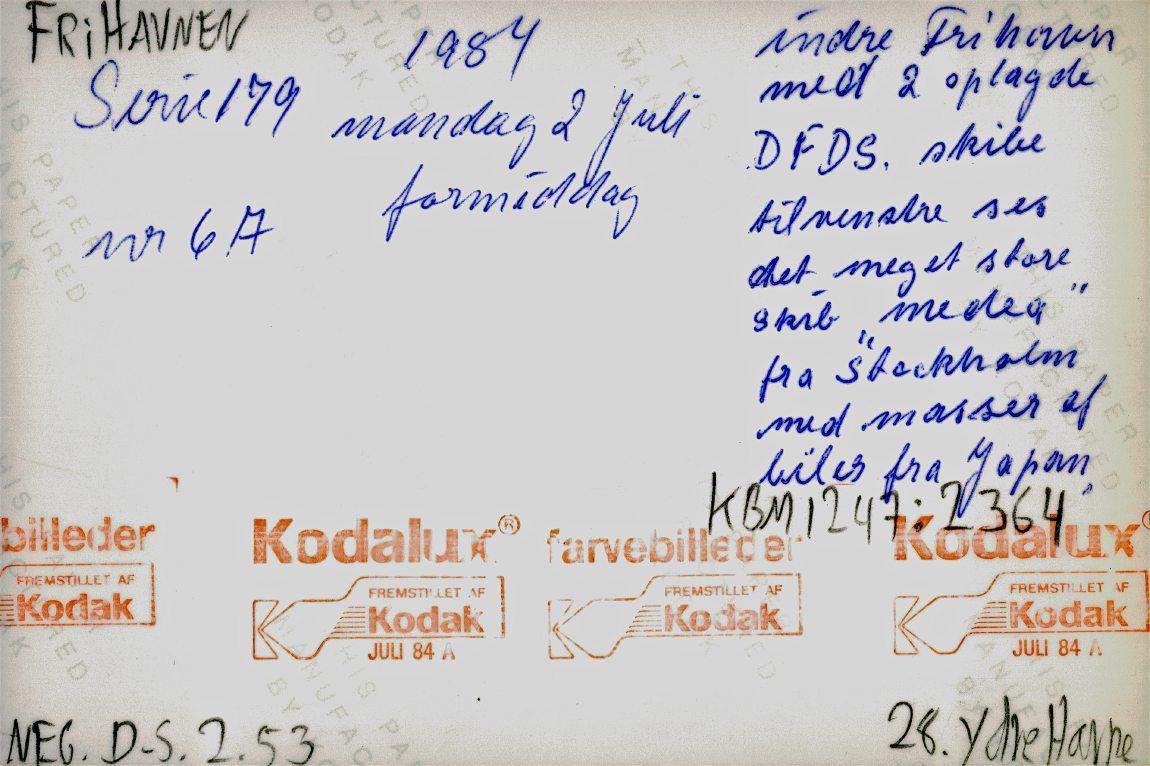 FRiHAVNEN
Serie 179
nr 6 A
1984
mandag 2 Juli
formiddag
indre Frihavn
med 2 oplagde
DFDS. skibe
tilvenstre ses
det meget store
skib „medea"
fra Stockholm
med masser af
biler fra Japan
KBM 1247: 2364
billeder
FREMSTILLET AF
Kodak
Kodalux®
FREMSTILLET AF
Kodak
JULI 84 A
farvebilleder
FREMSTILLET AF
Kodak
Kodalux®
FREMSTILLET AF
Kodak
JULI 84 A
NEG. D-S. 2.53
28. Ydre Havne
THIS PAPER
MANUFACTURED
BY KODAK